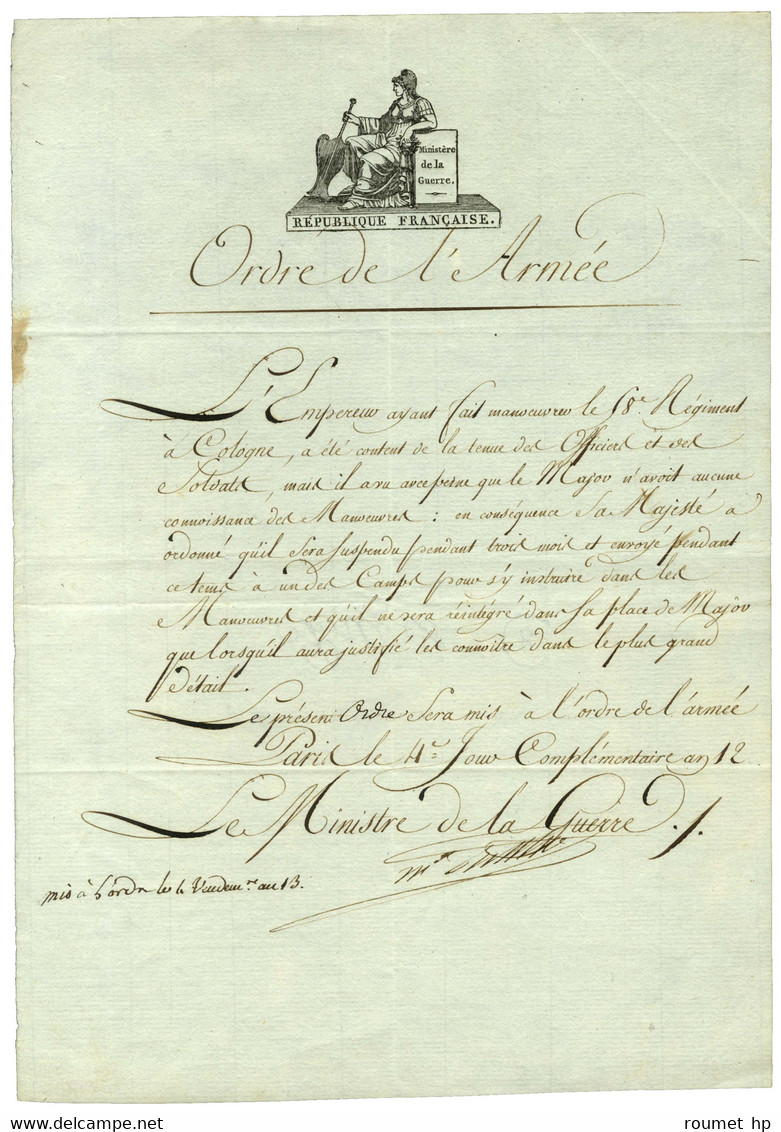 Ministère
de la
Guerre.
RÉPUBLIQUE FRANÇAISE.
Ordre de l'Armée
L'Empereur ayant fait manoeuvrer le 58e. Régiment
à Cologne, a été content de la tenue des Officiers et des
Soldats, mais il a vu avec peine que le Major n'avoit aucune
connoissance des Manoeuvres : en conséquence Sa Majesté a
ordonné qu'il sera suspendu pendant trois mois et envoyé pendant
ce tems à un des Camps pour s'y instruire dans les
Manoeuvres et qu'il ne sera réintégré dans sa place de Major
que lorsqu'il aura justifié les connoître dans le plus grand
détail.
Le présent Ordre sera mis à l'ordre de l'armée
Paris le 4e. Jour Complémentaire an 12
Le Ministre de la Guerre
mis à l'ordre le Vendem.re an 13.
www.delcampe.net
roumet hp